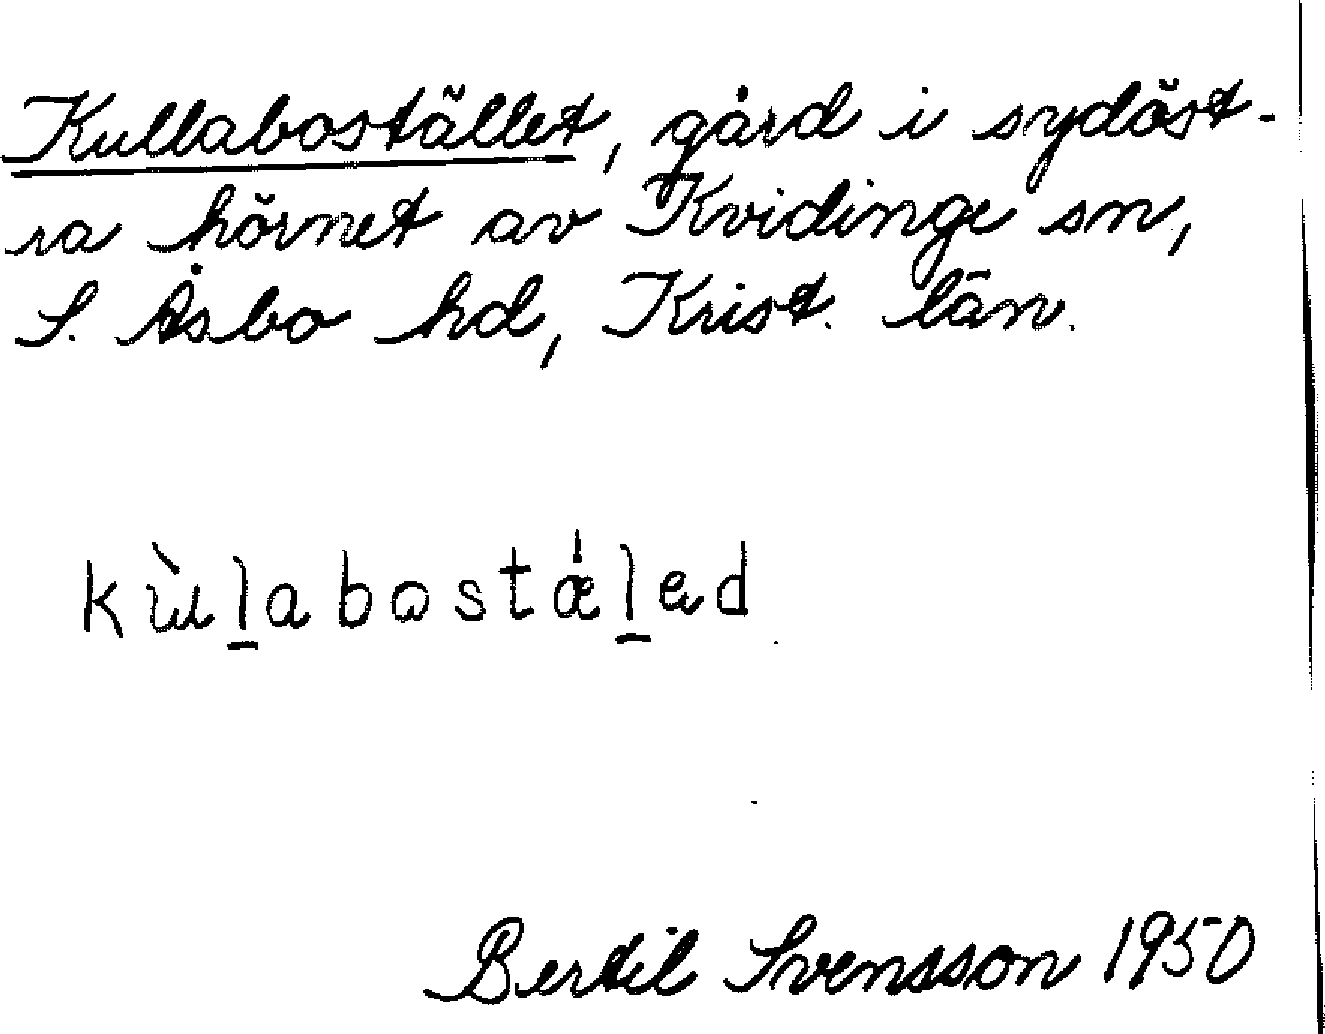 Kullabostället, gård i sydöst-
ra hörnet av Kvidinge sn,
S. Åsbo hd, Krist. län.
kùl̲abostǽl̲ed
Bertil Svensson 1950